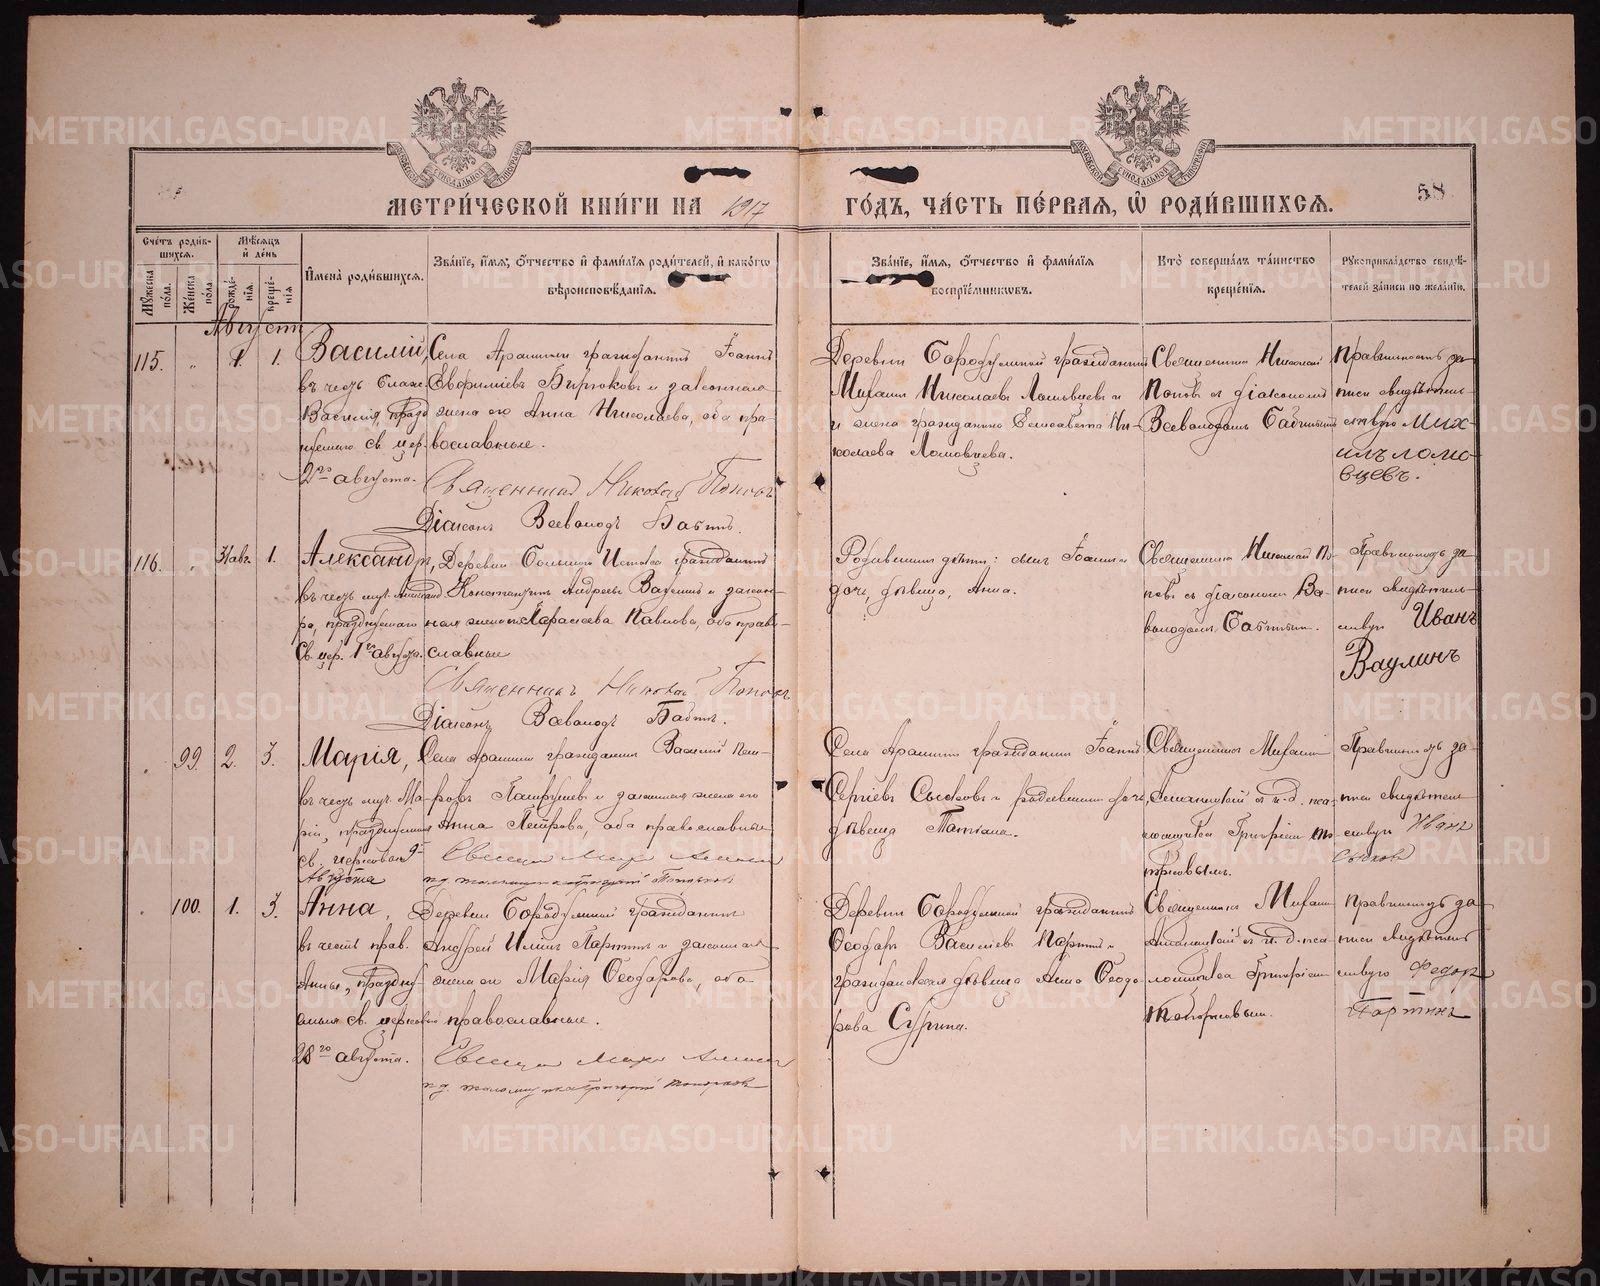 МЕТРИ́ЧЕСКОЙ КНИ́ГИ НА 1917
ГО́ДЪ, ЧА́СТЬ ПЕ́РВАЯ, Ѡ҆ РОДИ́ВШИХСЯ.
58
Сче́тъ роди́вшихся.
Мѣ́сяцъ и де́нь
Мꙋ́жеска по́ла.
Же́нска по́ла.
рожде́нія.
креще́нія.
И҆мена̀ роди́вшихся.
Зва́ніе, и҆́мя, ѻ҆́тчество и҆ фами́лія роди́телей, и҆ како́гѡ вѣроисповѣ́данія.
Зва́ніе, и҆́мя, ѻ҆́тчество и҆ фами́лія воспріе́мникѡвъ.
Кто̀ соверша́лъ та́инство креще́нія.
Рꙋкоприкла́дство свидѣ́телей за́писи по жела́нію.
Августъ
115. " 1. 1.
Василій,
въ честь блаж.
Василія, празднуемаго св. цер.
2го августа.
Села Арамили гражданинъ Іоаннъ
Евфиміевъ Бирюковъ и законная
жена его Анна Николаева, оба православные.
Священникъ Николай Поповъ
Діаконъ Всеволодъ
Деревни Бородулиной гражданинъ
Михаилъ Николаевъ Ломовцевъ и
жена гражданина Елисавета Николаева Ломовцева.
Священникъ Николай
Поповъ съ діакономъ
Всеволодомъ
Правильность записи свидѣтельствую Михаилъ Ломовцевъ.
116. " 31 авг. 1.
Александръ,
въ честь муч. Александра, празднуемаго
св. цер. 1го августа.
Деревни Большой Истокъ гражданинъ
Константинъ Андреевъ Ваулинъ и законная жена его Параскева Павлова, оба православные
Священникъ Николай Поповъ
Діаконъ Всеволодъ
Родившихъ дѣти: сынъ Іоаннъ и
дочь, дѣвица, Анна.
Священникъ Николай Поповъ съ діакономъ Всеволодомъ
Правильность записи свидѣтельствую Иванъ
Ваулинъ
99. 2. 3.
Марія,
въ честь муч. Маріи, празднуемыя
св. церковью 9
Августа
Села Арамили гражданинъ Василій Петровъ
и законная жена его
Анна Петрова, оба православные
Села Арамили гражданинъ Іоаннъ
Сергіевъ Сысковъ и родившихъ дочь,
дѣвица Татіана.
Священникъ Михаилъ
съ и. д. псаломщика Григоріемъ Топорковымъ.
Правильность записи свидѣтельствую Иванъ
100. 1. 3.
Анна,
въ честь прав.
Анны, празднуемыя св. церковью
28го августа.
Деревни Бородулиной гражданинъ
Андрей Ильинъ Партинъ и законная
жена его Марія Ѳеодорова, оба
православные.
Деревни Бородулиной гражданинъ
Ѳеодоръ Васильевъ Партинъ и
гражданская дѣвица Анна Ѳеодорова Сурина.
Священникъ Михаилъ
съ и. д. псаломщика Григоріемъ
Топорковымъ.
Правильность записи свидѣтельствую Федоръ
Партинъ
METRIKI.GASO-URAL.RU